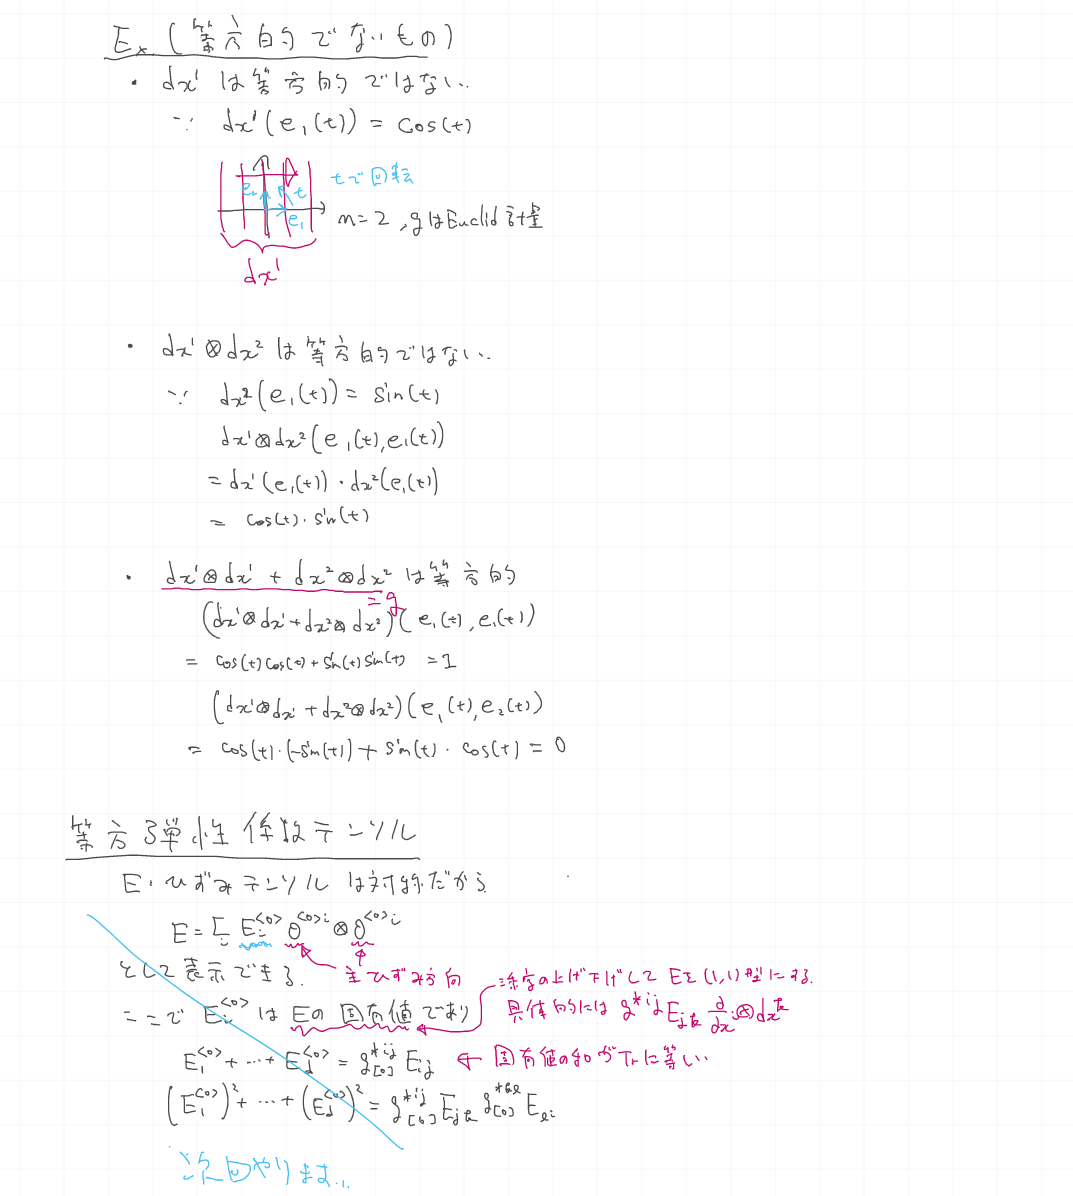 Ex. (等方的でないもの)
・ dx¹ は等方的ではない.
∵ dx¹(e₁(t)) = cos(t)
e₂ t e₁
tで回転
n=2, gはEuclid計量
dx¹
・ dx¹⊗dx² は等方的ではない.
∵ dx²(e₁(t)) = sin(t)
dx¹⊗dx²(e₁(t), e₁(t))
= dx¹(e₁(t))・dx²(e₁(t))
= cos(t)・sin(t)
・ dx¹⊗dx¹ + dx²⊗dx² は等方的
= g
(dx¹⊗dx¹ + dx²⊗dx²)(e₁(t), e₁(t))
= cos(t)cos(t) + sin(t)sin(t) = 1
(dx¹⊗dx¹ + dx²⊗dx²)(e₁(t), e₂(t))
= cos(t)・(-sin(t)) + sin(t)・cos(t) = 0
等方弾性係数テンソル
E: ひずみテンソル は対称だから
E = Σ_i E_i^{<0>} θ^{<0>i} ⊗ θ^{<0>i}
として表示できる.
主ひずみ方向
添字の上げ下げして Eを(1,1)型にする.
ここで E_i^{<0>} は Eの固有値であり
具体的には g^{*ij} E_{jk} ∂/∂x^i ⊗ dx^k
E_1^{<0>} + … + E_d^{<0>} = g_{[0]}^{*ij} E_{ij}
← 固有値の和がTrに等しい.
(E_1^{<0>})² + … + (E_d^{<0>})² = g_{[0]}^{*ij} E_{jk} g_{[0]}^{*kl} E_{li}
次回やります..